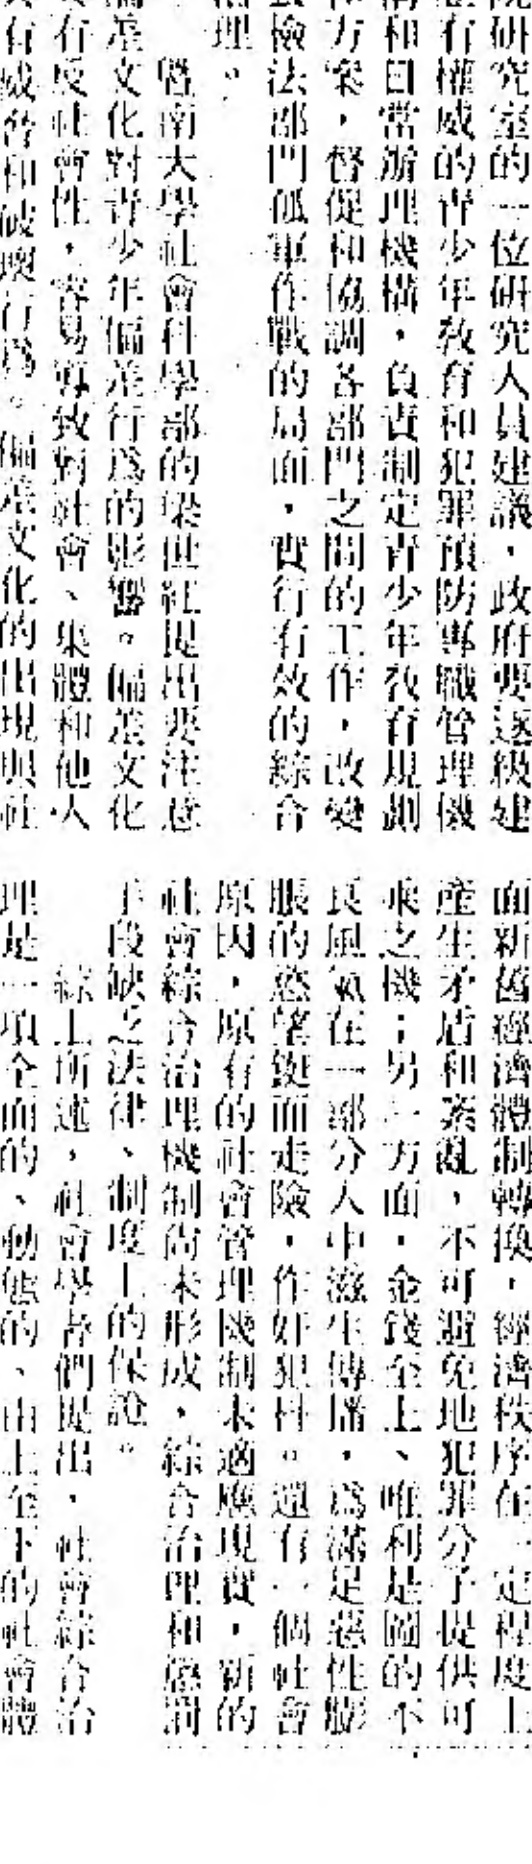 院研究室的一位研究人員建議，政府要逐級建
有權威的青少年教育和犯罪預防專職管理機
和日常辦理機構，負責制定青少年教育規劃
方案，督促和協調各部門之間的工作，改變
檢法部門孤軍作戰的局面，實行有效的綜合
理。
暨南大學社會科學部的梁世紅提出要注意
偏差文化對青少年偏差行爲的影響。偏差文化
有反社會性，容易導致對社會、集體和他人
有威脅和破壞行爲。偏差文化的出現與社
面新舊經濟體制轉換，經濟秩序在一定程度上
產生矛盾和紊亂，不可避免地犯罪分子提供可
乘之機；另一方面，金錢至上、唯利是圖的不
良風氣在一部分人中滋生傳播，爲滿足惡性膨
脹的慾望鋌而走險，作奸犯科。還有一個社會
原因，原有的社會管理機制未適應現實，新的
社會綜合治理機制尚未形成，綜合治理和懲罰
手段缺乏法律、制度上的保證。
綜上所述，社會學者們提出，社會綜合治
理是一項全面的、動態的、由上至下的社會體